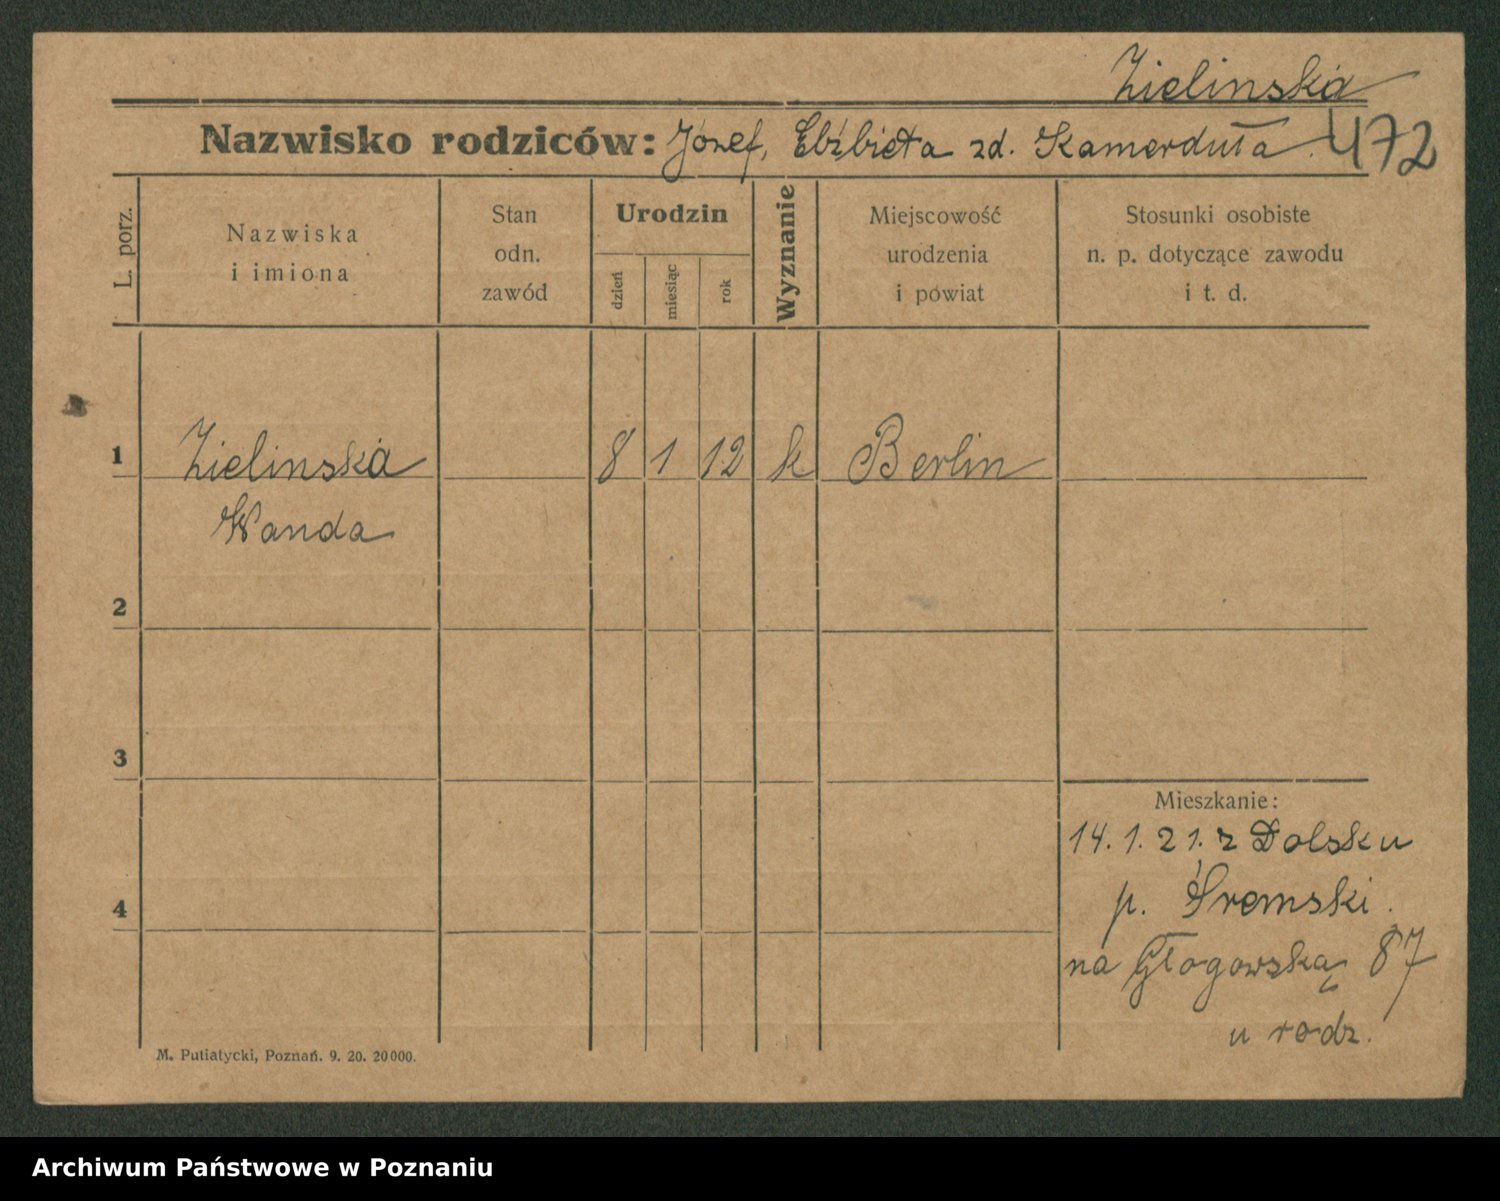 Zielinska
Nazwisko rodziców: Józef, Elżbieta zd. Kamerduła. 472
L. porz.
Nazwiska
i imiona
Stan
odn.
zawód
Urodzin
dzień
miesiąc
rok
Wyznanie
Miejscowość
urodzenia
i powiat
Stosunki osobiste
n. p. dotyczące zawodu
i t. d.
1 Zielinska 8 1 12 k Berlin
Wanda
2
3
Mieszkanie:
14. 1. 21. z Dolsku
p. Śremski.
4
na Głogowską 87
u rodz.
M. Putiatycki, Poznań. 9. 20. 20000.
Archiwum Państwowe w Poznaniu